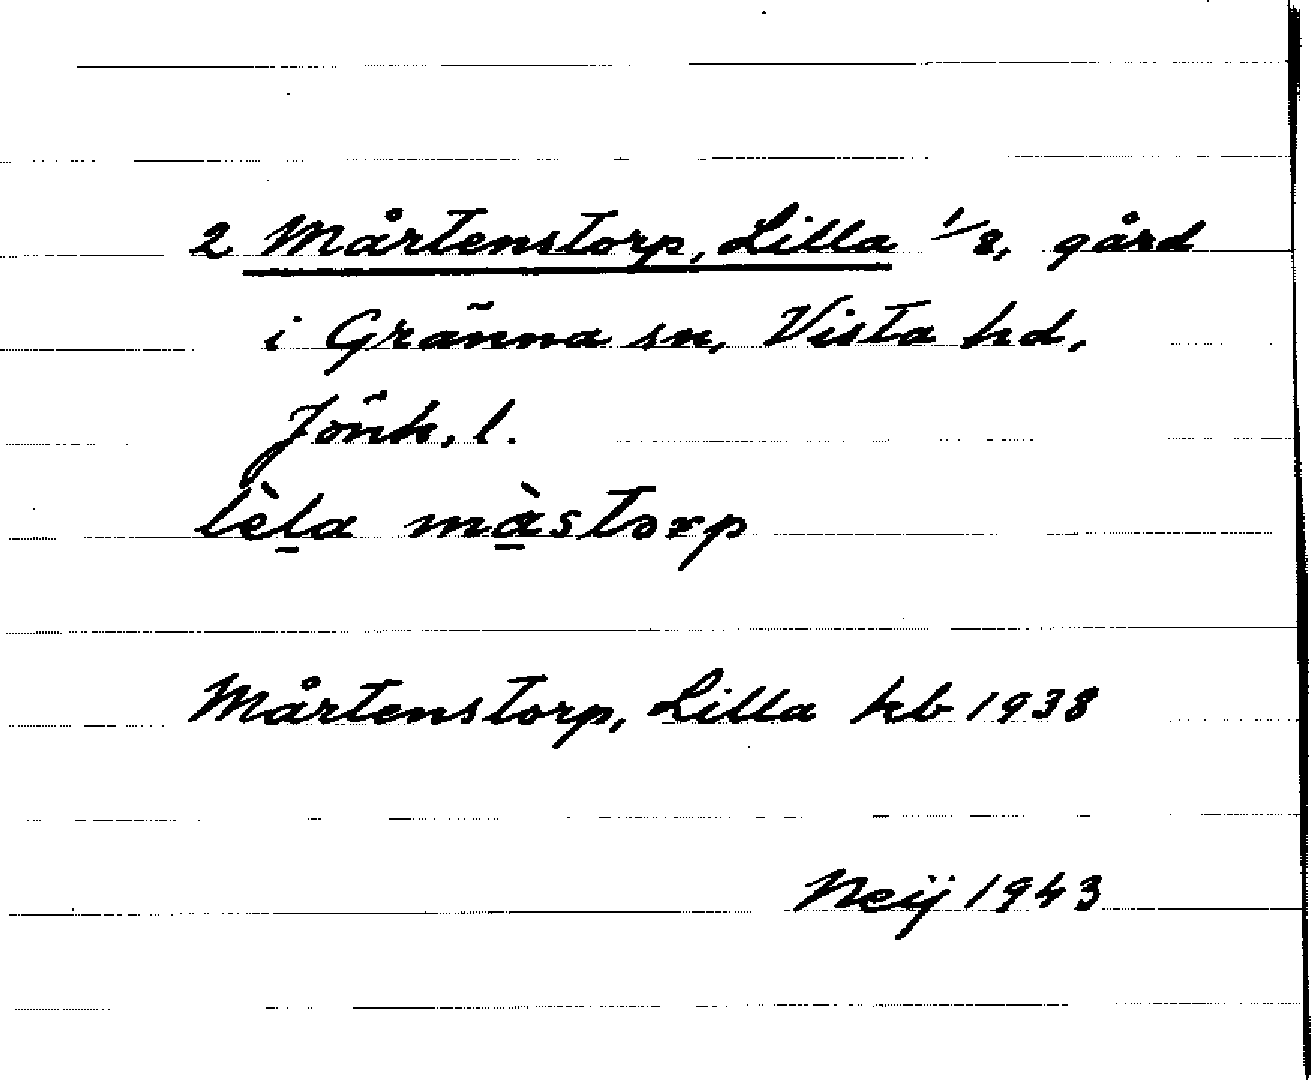 2 Mårtenstorp, Lilla 1/8, gård
i Gränna sn, Vista hd,
Jönk. l.
lèl̠a mà̠storp
Mårtenstorp, Lilla kb 1938
Neij 1943